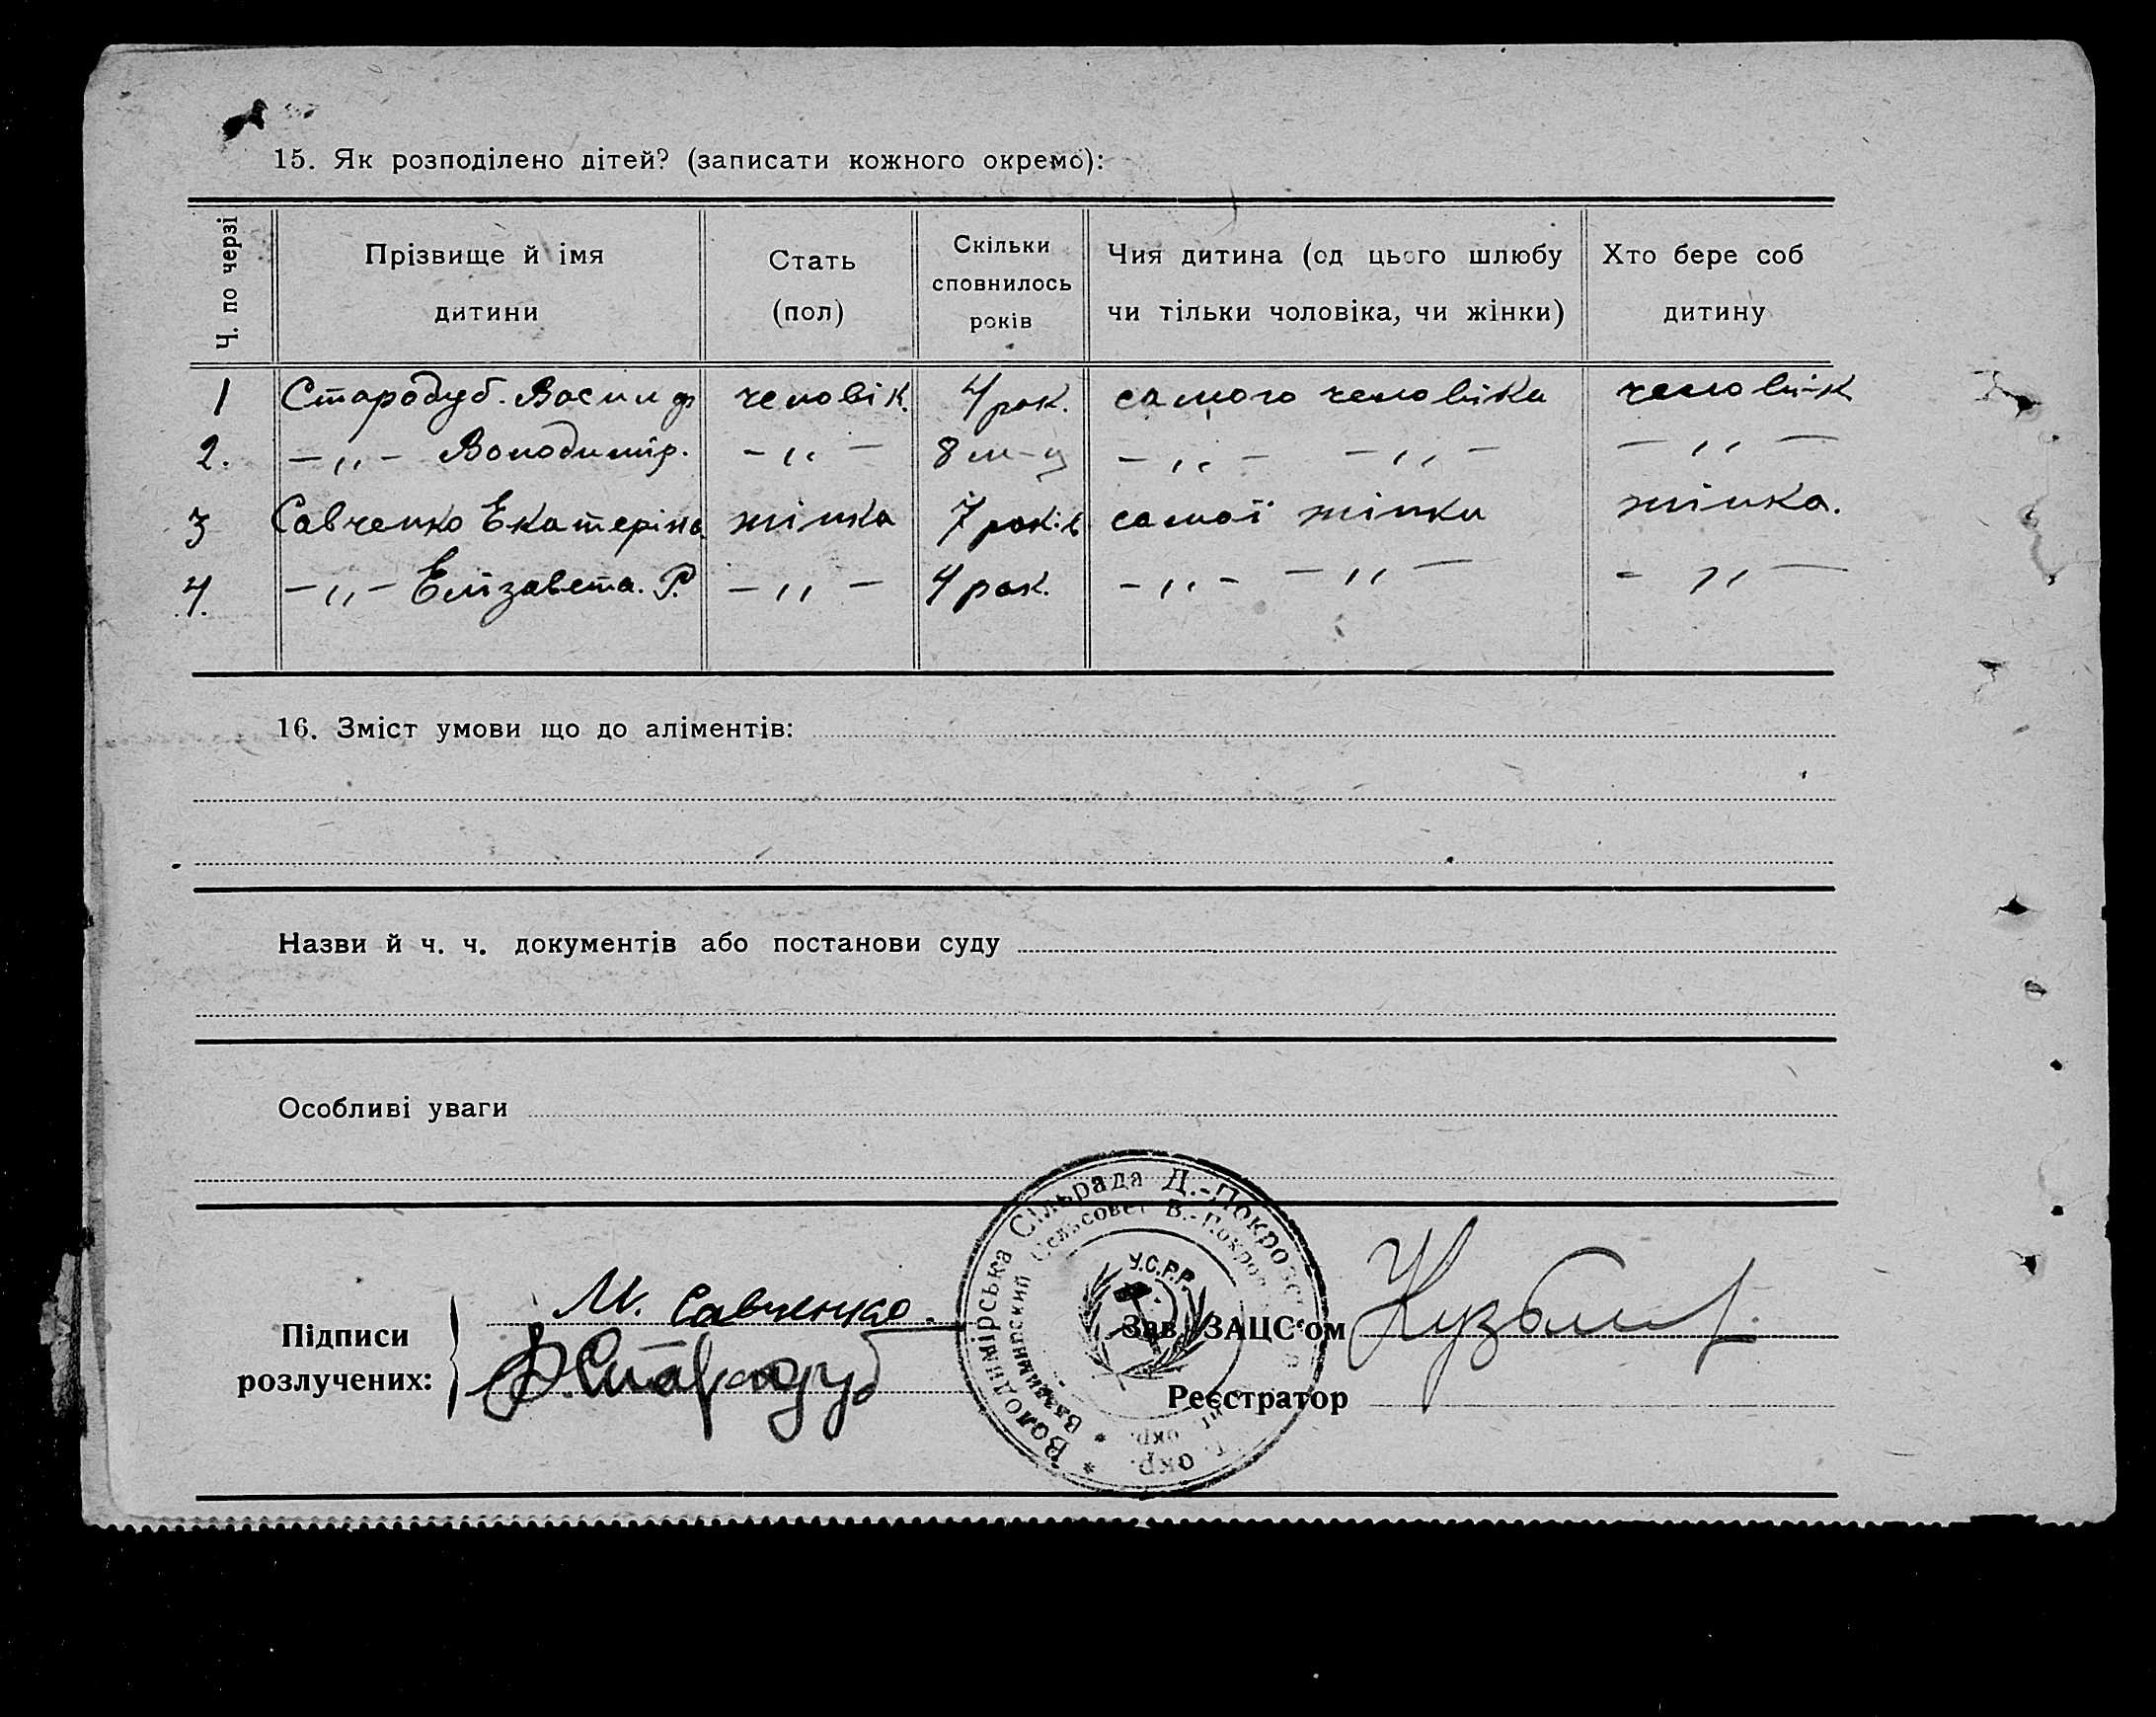 15. Як розподілено дітей? (записати кожного окремо):
Ч. по черзі
Прізвище й імя дитини
Стать (пол)
Скільки сповнилось років
Чия дитина (од цього шлюбу чи тільки чоловіка, чи жінки)
Хто бере соб дитину
1 Стародуб. Васил ф человік. 4 рок. самого человіка человік
2. — „ — Володимір. — „ — 8 м-ц — „ — — „ — — „ —
3 Савченко Екатеріна жінка 7 років самої жінки жінка.
4. — „ — Елізавета. Р. — „ — 4 рок. — „ — — „ — — „ —
16. Зміст умови що до аліментів:
Назви й ч. ч. документів або постанови суду
Особливі уваги
Володимірська Сільрада Д.-Покровс
Владимирский Сельсовет В.-Покров
окр.
окр.
У.С.Р.Р.
Підписи розлучених:
М. Савченко.
Стародуб
Зав. ЗАЦС'ом
Реєстратор